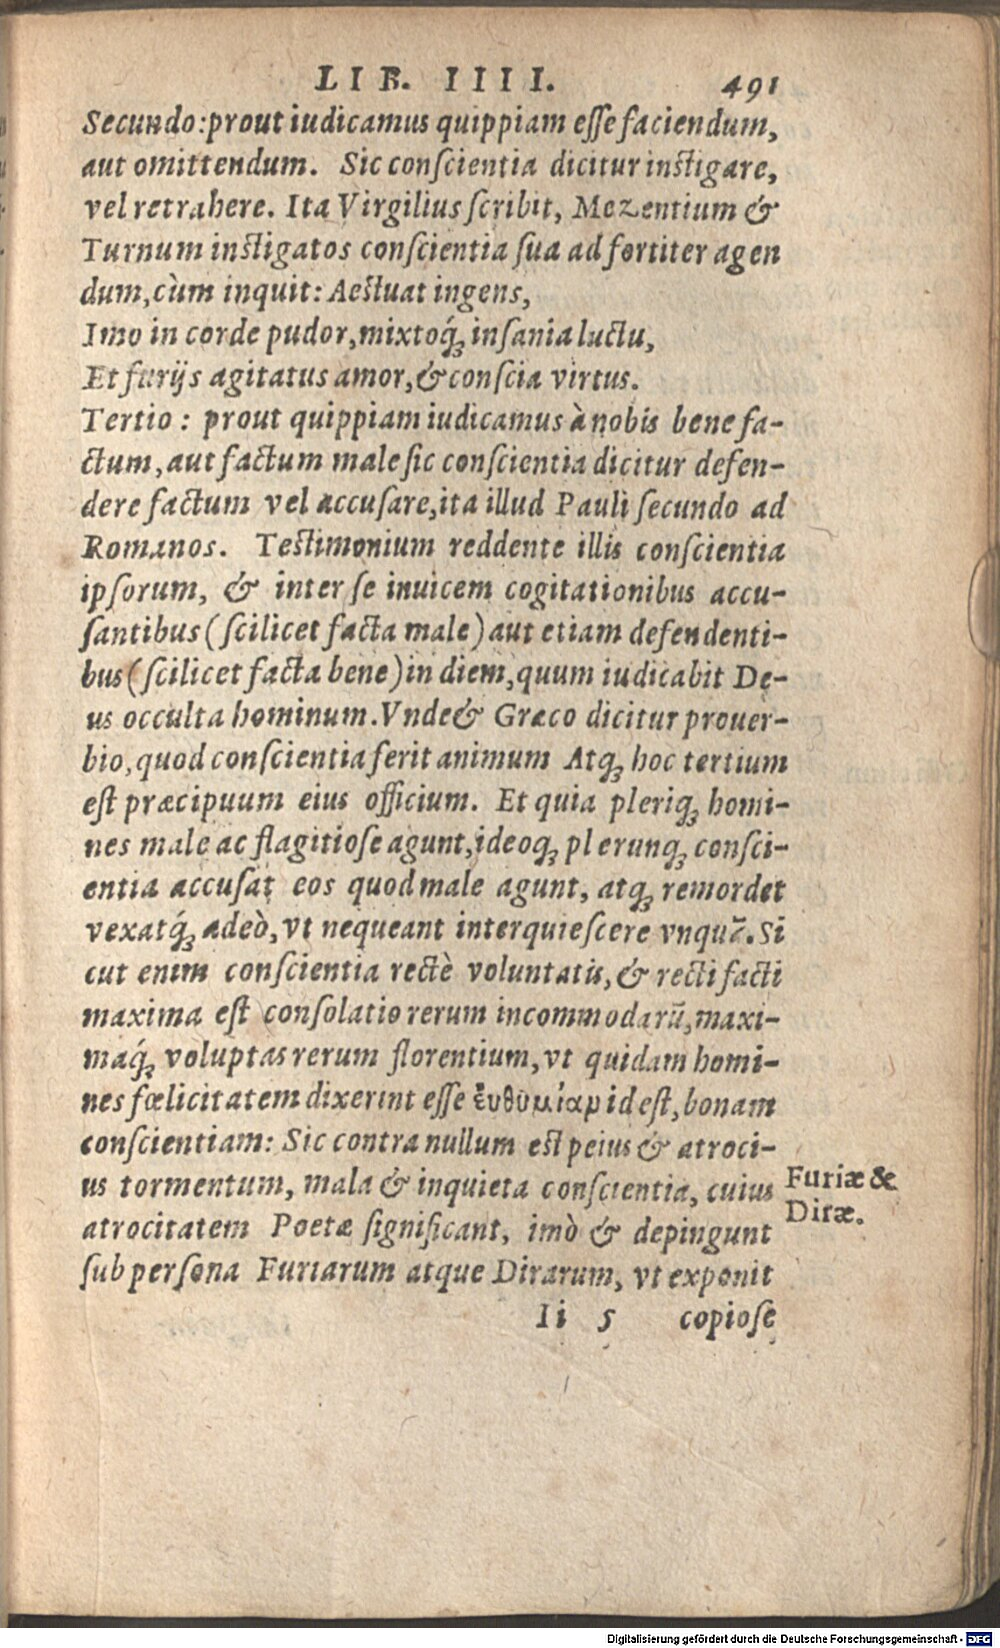 LIB. IIII. 491
Secundo: prout iudicamus quippiam esse faciendum,
aut omittendum. Sic conscientia dicitur instigare,
vel retrahere. Ita Virgilius scribit, Mezentium &
Turnum instigatos conscientia sua ad fortiter agen
dum, cùm inquit: Aestuat ingens,
Imo in corde pudor, mixtoq́; insania luctu,
Et furijs agitatus amor, & conscia virtus.
Tertio: prout quippiam iudicamus à nobis bene fa-
ctum, aut factum male sic conscientia dicitur defen-
dere factum vel accusare, ita illud Pauli secundo ad
Romanos. Testimonium reddente illis conscientia
ipsorum, & inter se inuicem cogitationibus accu-
santibus (scilicet facta male) aut etiam defendenti-
bus (scilicet facta bene) in diem, quum iudicabit De-
us occulta hominum. Vnde & Græco dicitur prouer-
bio, quod conscientia ferit animum Atq; hoc tertium
est præcipuum eius officium. Et quia pleriq; homi-
nes male ac flagitiose agunt, ideoq; plerunq; consci-
entia accusat eos quod male agunt, atq; remordet
vexatq́; adeò, vt nequeant interquiescere vnquã. Si
cut enim conscientia rectè voluntatis, & recti facti
maxima est consolatio rerum incommodarũ, maxi-
maq́; voluptas rerum florentium, vt quidam homi-
nes fœlicitatem dixerint esse ἐυθυμίαν id est, bonam
conscientiam: Sic contra nullum est peius & atroci-
us tormentum, mala & inquieta conscientia, cuius
Furiæ &
Diræ.
atrocitatem Poetæ significant, imò & depingunt
sub persona Furiarum atque Dirarum, vt exponit
Ii 5 copiose
Digitalisierung gefördert durch die Deutsche Forschungsgemeinschaft - DFG